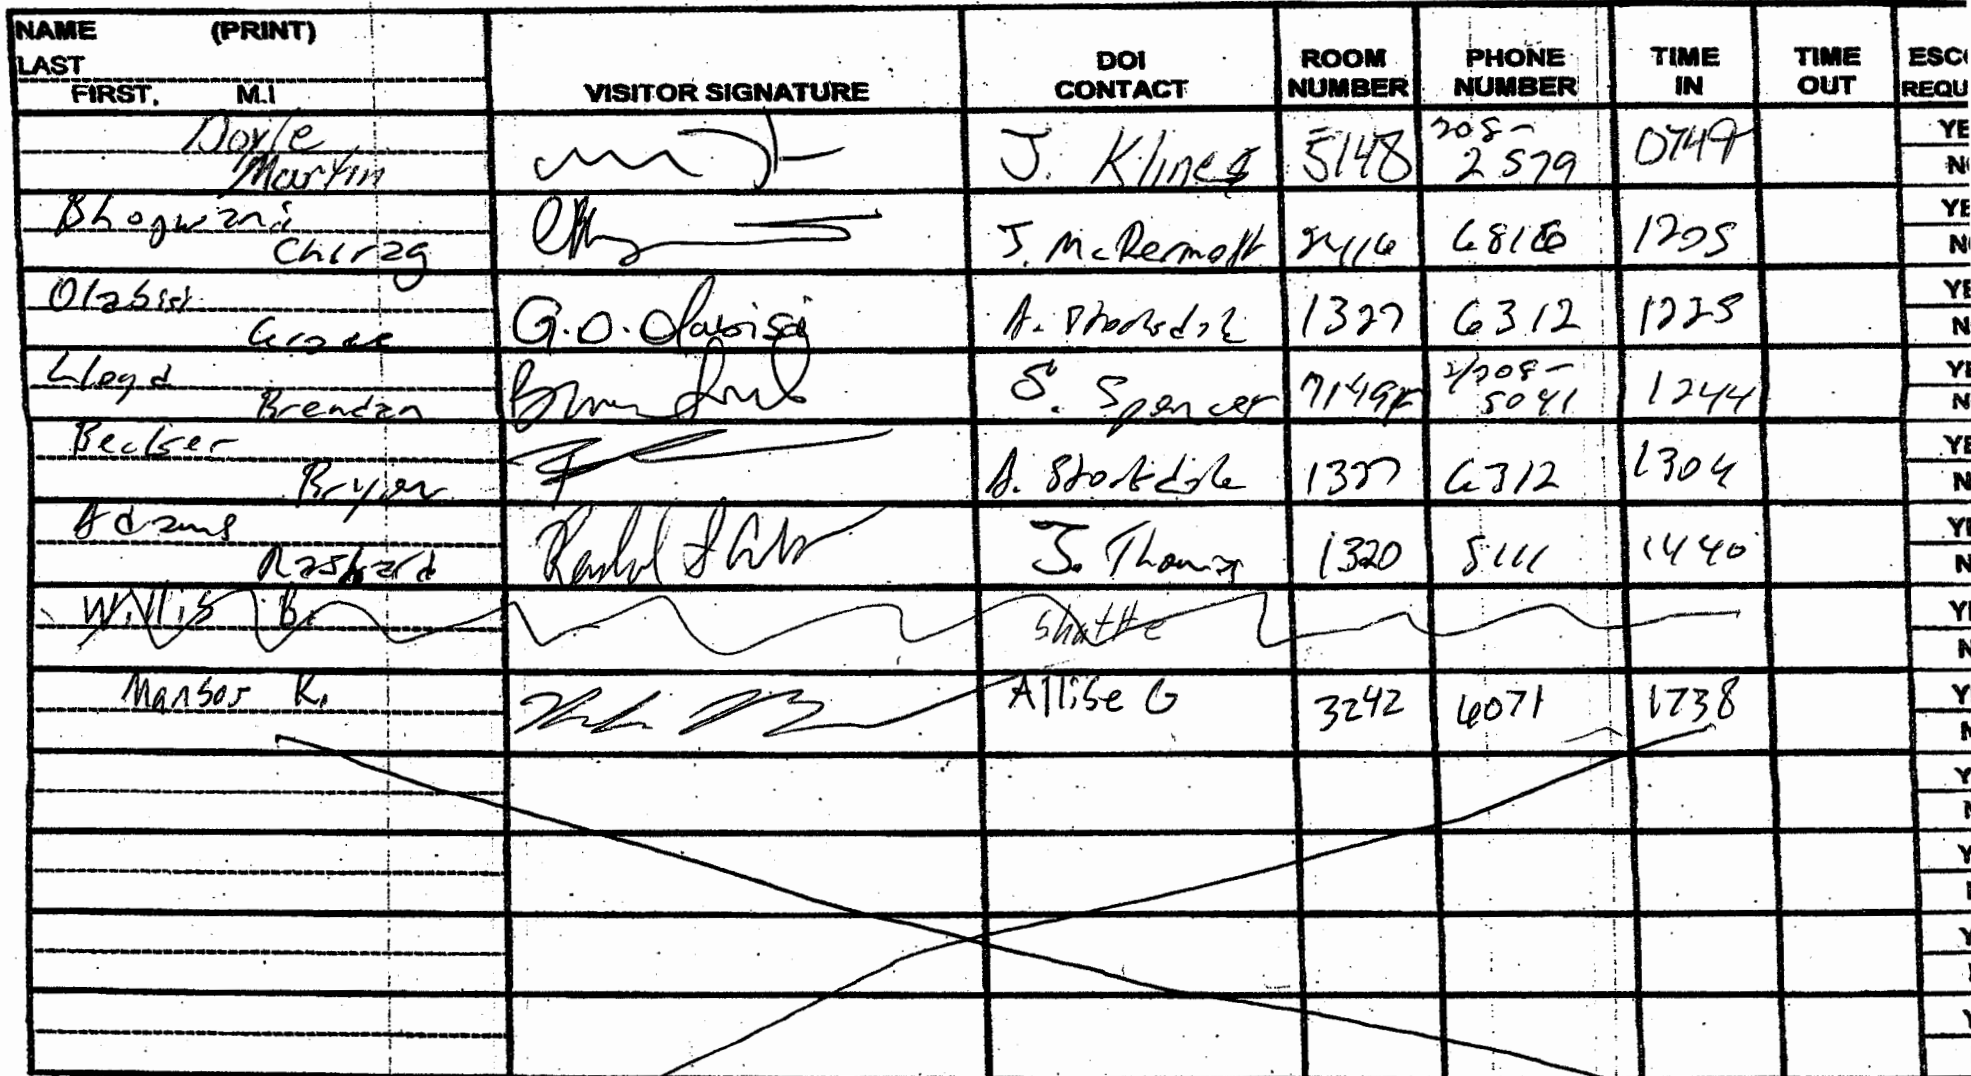 NAME (PRINT)
LAST
FIRST, M.I
VISITOR SIGNATURE
DOI CONTACT
ROOM NUMBER
PHONE NUMBER
TIME IN
TIME OUT
ESC
REQU
Doyle
Martin
J. Klines 5148 208-2579 0749
YE
N
Bhagwani
Chirag
J. McDermott 6816 1205
YE
N
Olabisi
Grace
G.O. Olabisi
A. Stocksdale 1327 6312 1225
YE
N
Lloyd
Brendan
S. Spencer 208-5041 1244
YE
N
Becker
Bryan
A. Stocksdale 1327 6312 1304
YE
N
Adams
Rashard
J. Thomas 1320 5111 1440
YE
N
Willis B.
YE
N
Mansor K.
Allise G 3242 6071 1738
Y
N